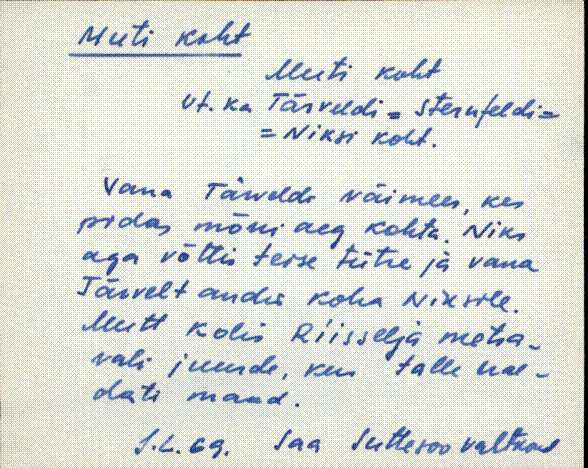 Muti koht
Muti koht
vt. ka Tärveldi = Sternfeldi =
= Niksi koht.
Vana Tärveldi väimees, kes
pidas mõni aeg kohta. Niks
aga võttis teise tütre ja vana
Tärvelt andis koha Niksile.
Mutt kolis Riisselja metsa-
vahi juurde, kus talle
dati maad.
J.L. 69. Saa Suttesoo